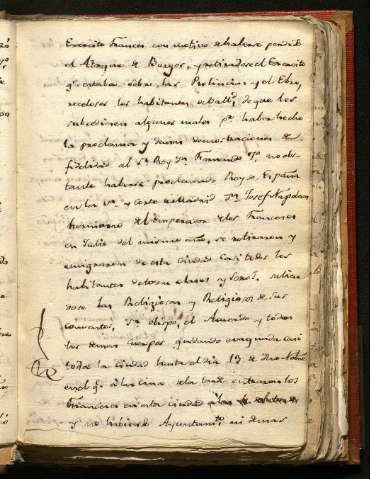 Exercito Frances con motivo de haberse perdido
el Ataque de Burgos, y retiradose el Exercito
qe. estaba sobre las Provincias y el Ebro,
recelosos los habitantes de Vallid. de que les
sucediesen algunos males pr. haber hecho
la proclama y demas demostraciones de
fidelidad al Sr. Rey Dn. Fernando 7o. no obs-
tante haberse proclamado Rey de España
en la Va. y Corte de Madrid Dn. Josef Napoleon
hermano del emperador de los Franceses
en Julio del mismo año, se retiraron y
emigraron de esta ciudad casi todos los
habitantes de todas clases y sexos, salien-
dose las Religiosas y Religiosos de sus
conventos, Sr. obispo, el Acuerdo y todos
los demas cuerpos quedando evacuada casi
toda la ciudad hasta el dia 13 de Nobre.
en el qe. de la tarde entraron los
Franceses en esta ciudad
y no hubiese Ayuntamto. ni demas